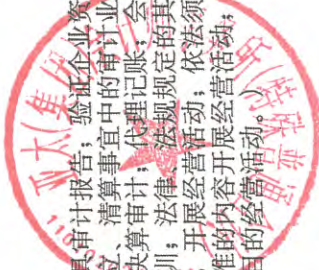 具审计报告；验证企业资
、清算事宜中的审计业
决算审计；代理记账；会
训；法律、法规规定的其
开展经营活动；依法须
准的内容开展经营活动；
目的经营活动。）
亚太(集
(特殊普通合